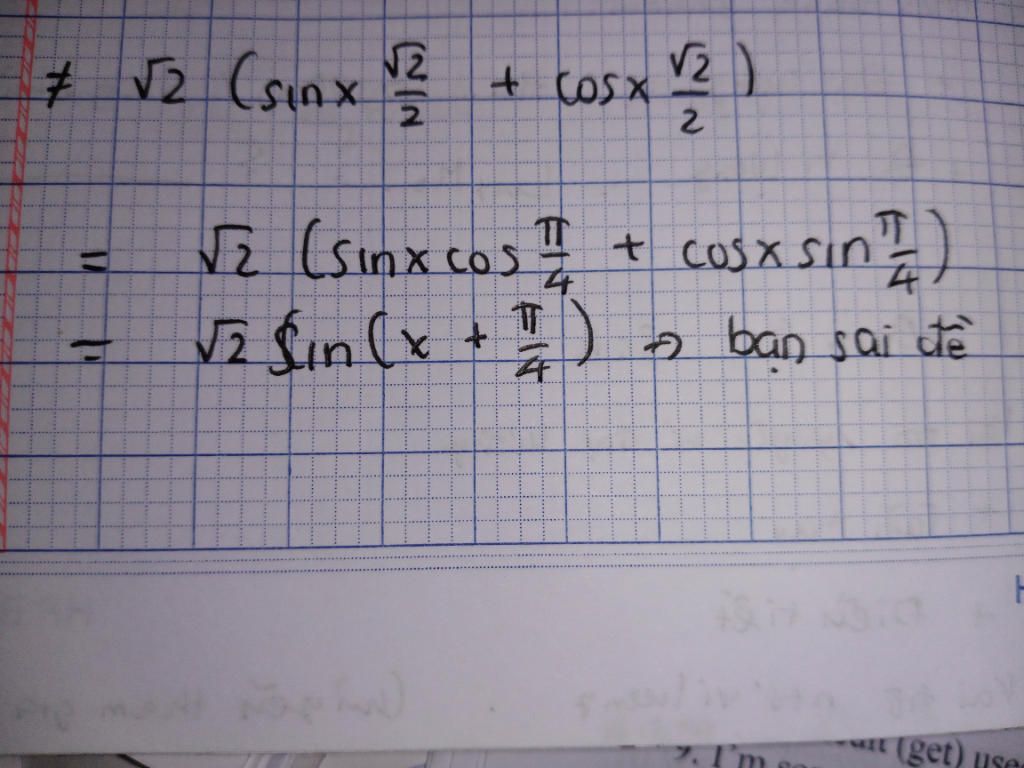 ≠ √2 (sinx √2/2 + cosx √2/2)
= √2 (sinx cos π/4 + cosx sin π/4)
= √2 sin(x + π/4) → bạn sai đề
(get) use